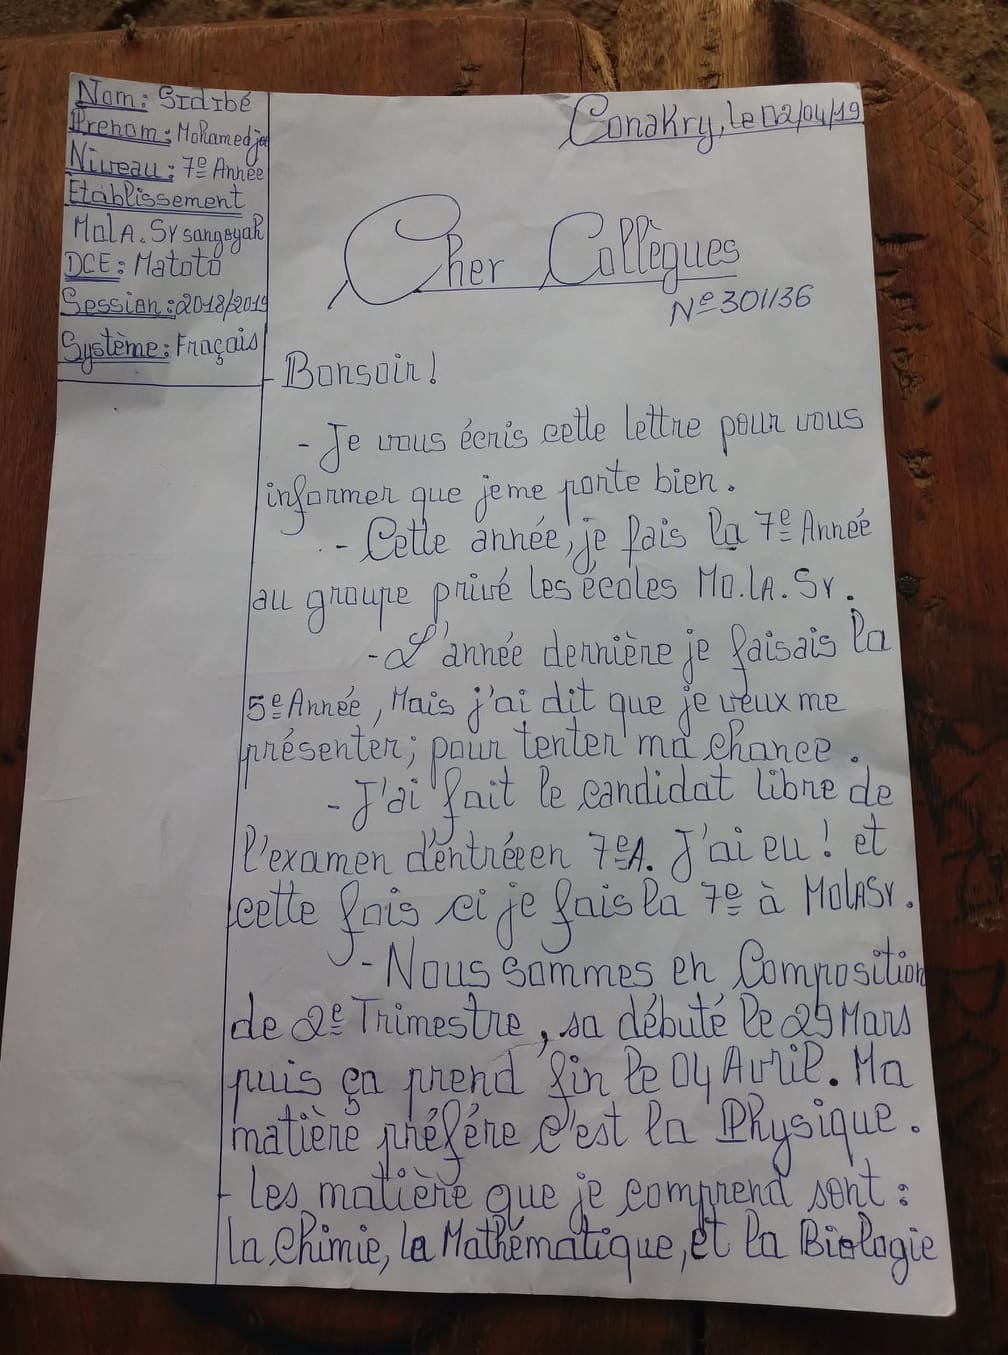 Nom: SIdIbé
Prenom: Mohamedje
Niveau: 7e Année
Etablissement
MolA.Sy sangoyah
DCE: Matoto
Session: 2018/2019
Système: Fraçais
Conakry, le 02/04/19
Cher Collègues
No 301136
Bonsoir!
- Je vous écris cette lettre pour vous
informer que je me porte bien.
- Cette année, je fais la 7e Année
au groupe privé les écoles Mo.lA.Sy.
- L'année dernière je faisais la
5e Année, Mais j'ai dit que je veux me
présenter; pour tenter ma chance.
- J'ai fait le candidat libre de
l'examen d'entréeen 7eA. J'ai eu! et
cette fois ci je fais la 7e à MolASy.
- Nous sommes en Composition
de 2e Trimestre, sa débuté le 29 Mars
puis ça prend fin le 04 Avril. Ma
matière préfére c'est la Physique.
- les matière que je comprend sont:
la chimie, la Mathématique, et la Biologie